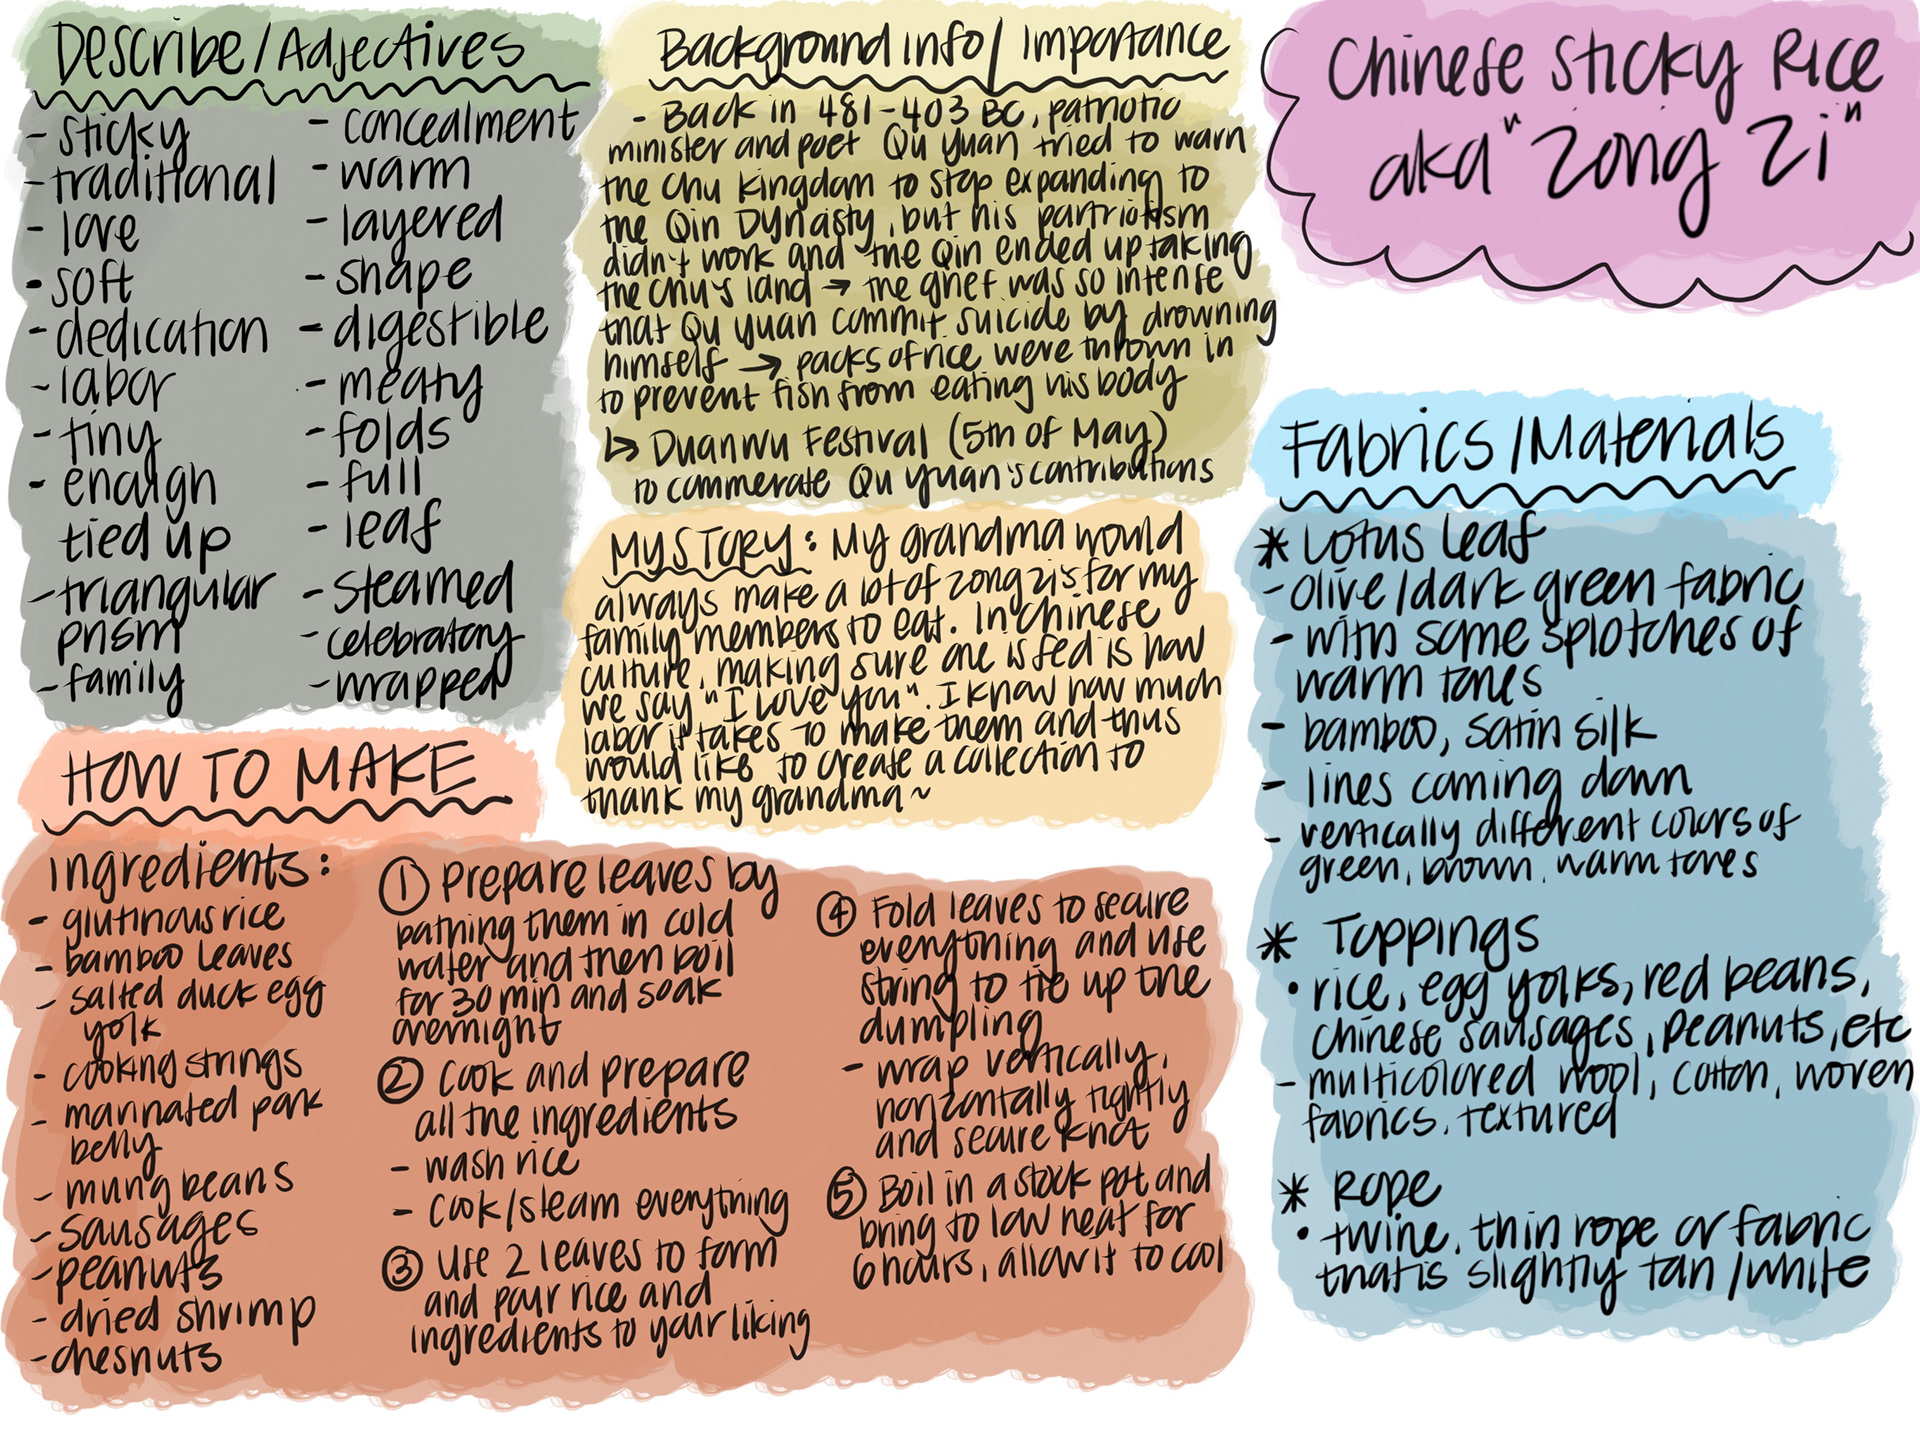 Describe/Adjectives
- sticky
- traditional
- love
- soft
- dedication
- labor
- tiny
- enough
tied up
- triangular
prism
- family
- concealment
- warm
- layered
- shape
- digestible
- meaty
- folds
- full
- leaf
- steamed
- celebratory
- wrapped
Background info/Importance
- Back in 481-403 BC, patriotic
minister and poet Qu Yuan tried to warn
the Chu Kingdom to stop expanding to
the Qin Dynasty, but his partriotism
didn't work and the Qin ended up taking
the Chu's land → the grief was so intense
that Qu Yuan commit suicide by drowning
himself → packs of rice were thrown in
to prevent fish from eating his body
↳ Duanwu Festival (5th of May)
to commerate Qu Yuan's contributions
MY STORY: My grandma would
always make a lot of zong zi's for my
family members to eat. In Chinese
culture, making sure one is fed is how
we say "I love you". I know how much
labor it takes to make them and thus
would like to create a collection to
thank my grandma ~
Chinese Sticky Rice
aka "Zong Zi"
Fabrics/Materials
* Lotus Leaf
- olive/dark green fabric
- with some splotches of
warm tones
- bamboo, satin silk
- lines coming down
- vertically different colors of
green, brown, warm tones
* Toppings
• rice, egg yolks, red beans,
chinese sausages, peanuts, etc
- multicolored wool, cotton, woven
fabrics, textured
* Rope
• twine, thin rope or fabric
that is slightly tan/white
HOW TO MAKE
Ingredients:
- glutinous rice
- bamboo leaves
- salted duck egg
yolk
- cooking strings
- marinated pork
belly
- mung beans
- sausages
- peanuts
- dried shrimp
- chesnuts
① Prepare leaves by
bathing them in cold
water and then boil
for 30 min and soak
overnight
② Cook and prepare
all the ingredients
- wash rice
- cook/steam everything
③ Use 2 leaves to form
and pour rice and
ingredients to your liking
④ Fold leaves to secure
everything and use
string to tie up the
dumpling
- wrap vertically,
horizontally tightly
and secure knot
⑤ Boil in a stock pot and
bring to low heat for
6 hours, allow it to cool